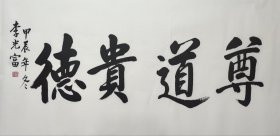 尊道貴德
甲辰年冬
李光富